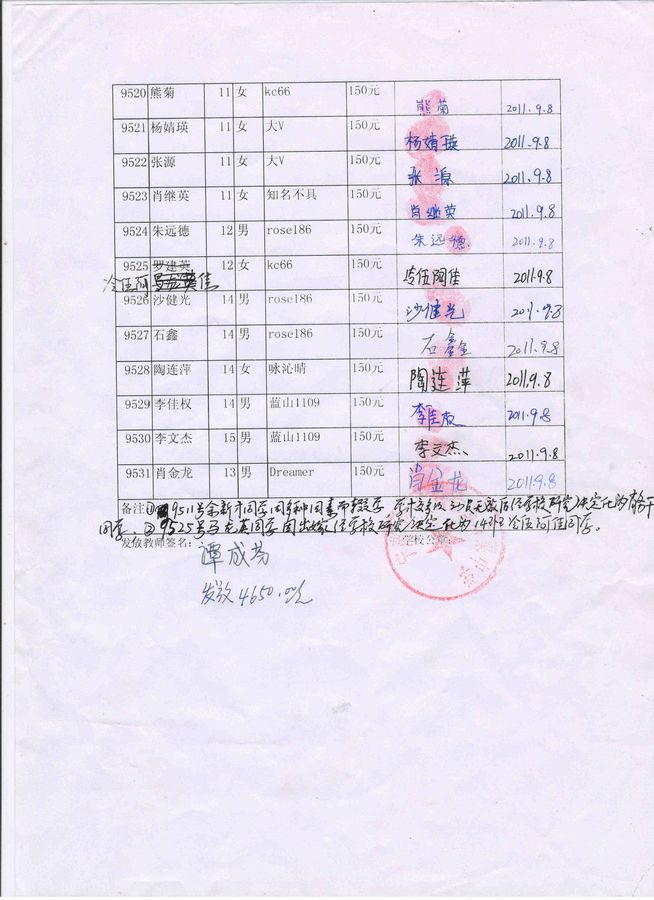 9520 熊菊 11 女 kc66 150元 熊菊 2011.9.8
9521 杨婧瑛 11 女 大V 150元 杨婧瑛 2011.9.8
9522 张源 11 女 大V 150元 张源 2011.9.8
9523 肖继英 11 女 知名不具 150元 肖继英 2011.9.8
9524 朱远德 12 男 rose186 150元 朱远德 2011.9.8
9525 罗建英 12 女 kc66 150元 冷伍阿佳 2011.9.8
冷伍阿佳
9526 沙健光 14 男 rose186 150元 沙健光 2011.9.8
9527 石鑫 14 男 rose186 150元 石鑫 2011.9.8
9528 陶连萍 14 女 咏沁晴 150元 陶连萍 2011.9.8
9529 李佳权 14 男 蓝山1109 150元 李佳权 2011.9.8
9530 李文杰 15 男 蓝山1109 150元 李文杰 2011.9.8
9531 肖金龙 13 男 Dreamer 150元 肖金龙 2011.9.8
备注:①9511号余新才同学因种因素而辍学,学校多次动员无效后经学校研究决定
同学.②9525号马龙英同学因出嫁经学校研究决定 冷伍阿佳同学。
发放教师签名: 谭成芳 学校公章:
发放4650.00元